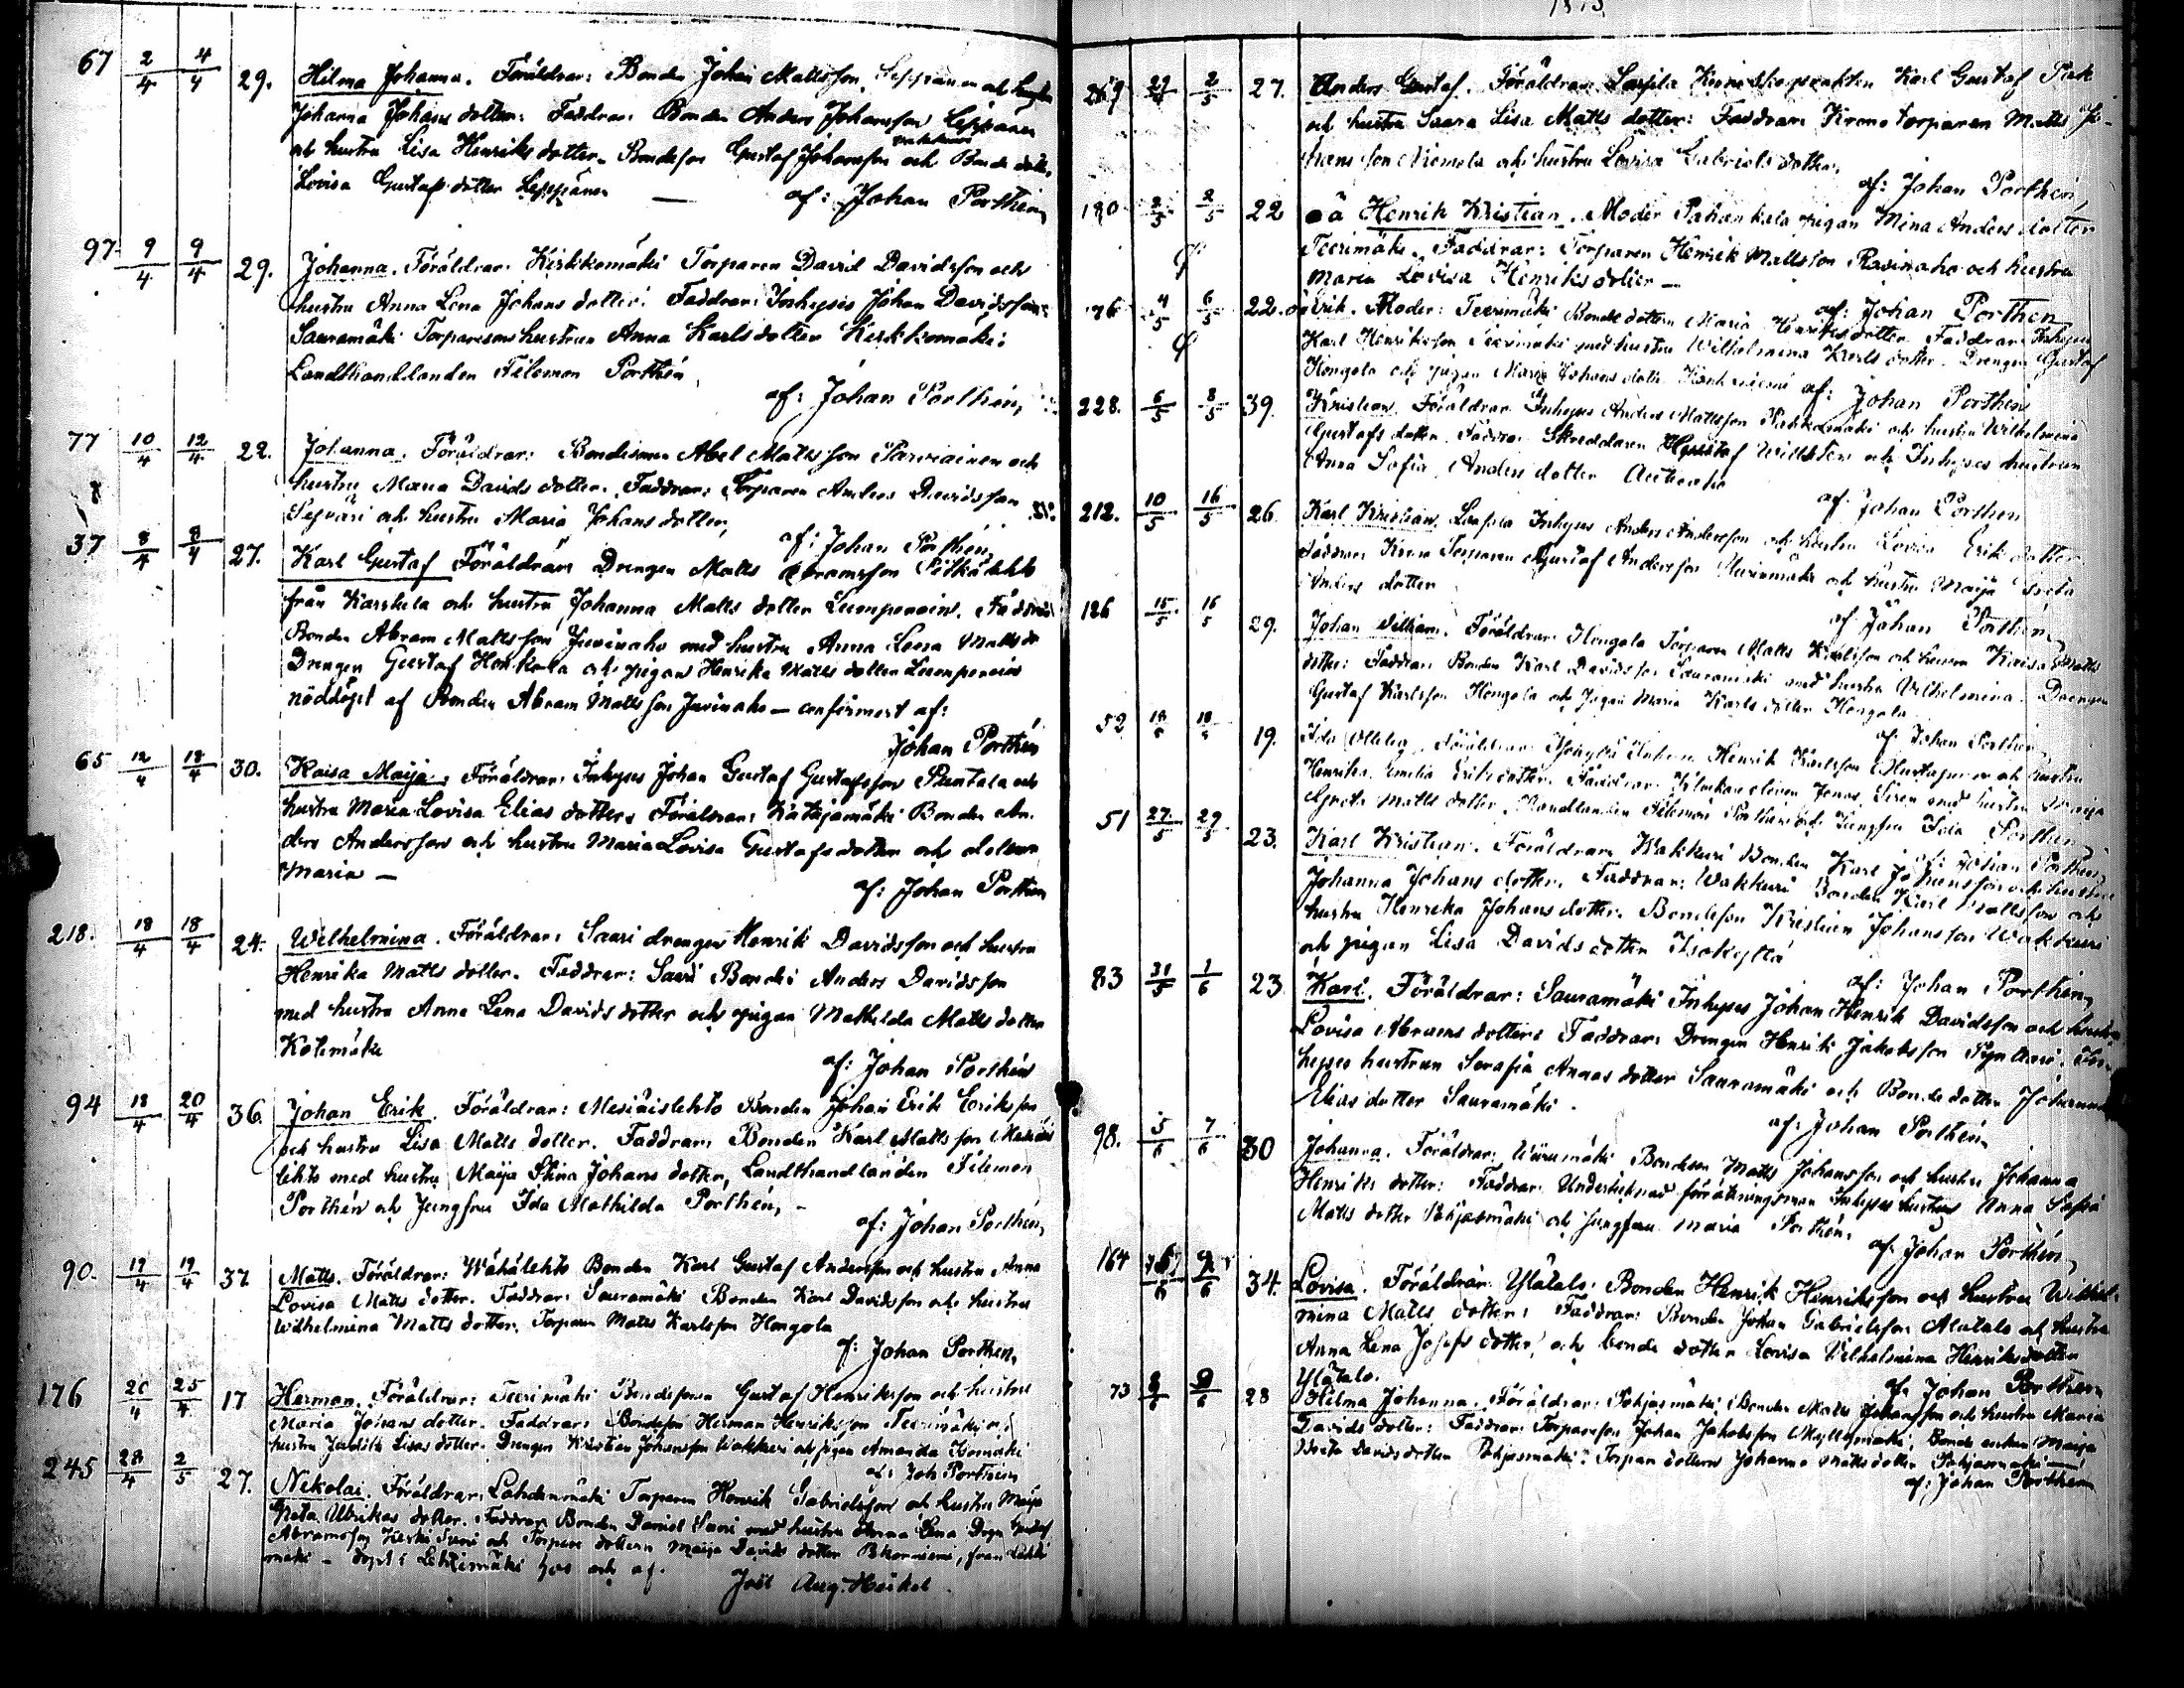 67 2/4 4/4 29. Hilma Johanna. Föräldrar: Bonden Johan Mattsson Leppänen och hustru
Johanna Johans dotter: Faddrar: Bonden Anders Johansson Leppänen
och hustru Lisa Henriks dotter. Bondeson Gustaf Johansson och Bonde dott.
Lovisa Gustafs dotter Leppänen — af: Johan Porthén,
97 9/4 9/4 29. Johanna. Föräldrar: Kirkkomäki Torparen David Davidsson och
hustru Anna Lena Johans dotter: Faddrar: Inhyses Johan Davidsson
Sauramäki Torparesons hustrun Anna Karls dotter Kirkkomäki:
Landthandlanden Filemon Porthén,
af: Johan Porthén,
77 10/4 12/4 22. Johanna. Föräldrar: Bondeson Abel Mattsson Parviainen och
hustru Maria Davids dotter. Faddrar: Torparen Anders Davidsson
och hustru Maria Johans dotter,
af: Johan Porthén,
37 8/4 8/4 27. Karl Gustaf Föräldrar: Drengen Matts Abramsson Pitkälehto
från Karstula och hustru Johanna Matts dotter Lumperoin. Faddrar
Bonden Abram Mattsson Juvinaho med hustru Anna Lena Matts do
Drengen Gustaf Honkola och pigan Henrika Matts dotter Lumperoin
nöddöpt af Bonden Abram Mattsson Juvinaho — confirmert af:
Johan Porthén
65 12/4 18/4 30. Kaisa Maija: Föräldrar: Inhyses Johan Gustaf Gustafsson Puntala och
hustru Maria Lovisa Elias dotter: Föräldrar: Katajamäki Bonden An-
ders Andersson och hustru Maria Lovisa Gustafs dotter och dottren
Maria —
af: Johan Porthén
218. 18/4 18/4 24. Wilhelmina. Föräldrar: Saari drengen Henrik Davidsson och hustru
Henrika Matts dotter. Faddrar: Saari Bonde Anders Davidsson
med hustru Anna Lena Davids dotter och pigan Mathilda Matts dotter
Kotimäki
af: Johan Porthén
94 18/4 20/4 36. Johan Erik. Föräldrar: Mesiäislehto Bonden Johan Erik Eriksson
och hustru Lisa Matts dotter. Faddrar: Bonden Karl Mattsson Mesiäis
lehto med hustru Maija Stina Johans dotter, Landthandlanden Filemon
Porthén och Jungfru Ida Mathilda Porthén, -
af: Johan Porthén,
90. 19/4 19/4 37 Matts. Föräldrar: Wähälehto Bonden Karl Gustaf Andersson och hustru Anna
Lovisa Matts dotter. Faddrar: Sauramäki Bonden Karl Davidsson och hustru
Wilhelmina Matts dotter. Torparen Matts Karlsson Hengola
af: Johan Porthén,
176 20/4 25/4 17 Herman. Föräldrar: Teerimäki Bondesonen Gustaf Henriksson och hustru
Maria Johans dotter. Faddrar: Bondeson Herman Henriksson Teerimäki och
hustru Judith Lisas dotter. Drengen Kristian Johansson Wakkuri och pigan Amanda
af: Joh Porthén
245 28/4 2/5 27. Nikolai. Föräldrar: Lahdenmäki Torparen Henrik Gabrielsson och hustru Maija
Greta Ulrikas dotter. Faddrar: Bonden Daniel Saari med hustru Anna Lena Dreng Gustaf
Abramsson Keski Saari och Torpare dottern Maija Davids dotter från Lehti
mäki — döpt i Lehtimäki hos och af. Joel Aug. Heikel.
1873
269 27/4 2/5 27. Anders Gustaf. Föräldrar: Karl Gustaf
och hustru Saara Lisa Matts dotter: Faddrar: Krono torparen Matts Jo-
hansson Niemelä och hustru Lovisa Gabriels dotter.
af: Johan Porthén,
180 2/5 2/5 22 oä Henrik Kristian. Moder Pahankala pigan Mina Anders dotter
Teerimäki. Faddrar: Torparen Henrik Mattsson Ravinaho och hustru
Maria Lovisa Henriks dotter —
af: Johan Porthén
176 4/5 6/5 22. oä Erik. Moder: Teerimäki Bonde dottern Maria Henriks dotter Faddrar: Inhyses
Karl Henriksson Teerimäki med hustru Wilhelmina Karls dotter. Drengen Gustaf
Hengola och pigan Maria Johans dotter
af: Johan Porthén
228. 6/5 8/5 39. Kristian. Föräldrar: Inhyses Anders Mattsson Pakkamäki och hustru Wilhelmina
Gustafs dotter. Faddrar: Skreddaren Gustaf och Inhyses hustrun
Anna Sofia Anders dotter Autioaho
af Johan Porthén
212. 10/5 16/5 26 Karl Kristian. Inhyses Anders Andersson och hustru Lovisa Eriks dotter
Faddrar: Krono Torparen Gustaf Andersson och hustru Maija Greta
Anders dotter
af Johan Porthén
126 15/5 16/5 29. Johan William. Föräldrar: Hengola Torparen Matts Karlsson och hustru Kaisa Matts
dotter: Faddrar: Bonden Karl Davidsson Sauramäki med hustru Wilhelmina. Drengen
Gustaf Karlsson Hengola och pigan Maria Karls dotter Hengola
af: Johan Porthén
52 18/5 18/5 19. Ida Föräldrar: Henrik Karlsson och hustru
Henrika Emilia Eriks dotter. Faddrar: Klockare eleven Jonas Siren med hustru Maija
Greta Matts dotter, Handlanden Filemon Porthén och Jungfru Ida Porthén
af: Johan Porthén,
51 27/5 29/5 23. Karl Kristian. Föräldrar: Wakkuri Bonden Karl Johansson och hustru
Johanna Johans dotter. Faddrar: Wakkuri Bonden Karl Mattsson och
hustru Henrika Johans dotter. Bondeson Kristian Johansson Wakkuri
och pigan Lisa Davids dotter Isokyllä
af: Johan Porthén,
83 31/5 1/6 23 Karl. Föräldrar: Sauramäki Inhyses Johan Henrik Davidsson och hustru
Lovisa Abrams dotter: Faddrar: Drengen Henrik Jakobsson In-
hyses hustrun Serafia Annas dotter Sauramäki och Bonde dotter Johanna
Elias dotter Sauramäki.
af: Johan Porthén
98. 5/6 7/6 30 Johanna. Föräldrar: Bondeson Matts Johansson och hustru Johanna
Henriks dotter: Faddrar: Undertecknad Inhyses hustrun Anna Sofia
Matts dotter Pohjasmäki och Jungfrun Maria Porthén.
af: Johan Porthén,
164 34. Lovisa. Föräldrar: Ylätalo Bonden Henrik Henriksson och hustru Wilhel-
mina Matts dotter: Faddrar: Bonden Johan Gabrielsson Alatalo och hustru
Anna Lena Josefs dotter, och bonde dotter Lovisa Wilhelmina Henriks dotter
Ylätalo.
af: Johan Porthén
73 28 Hilma Johanna. Föräldrar: Pohjasmäki Bonden Matts Johansson och hustru Maria
Davids dotter: Faddrar: Torpareson Johan Jakobsson Myllymäki, Bonde enkan Maija
Greta Davids dotter Pohjasmäki: Torpare dottern Johanna Matts dotter Pohjasmäki —
af: Johan Porthén